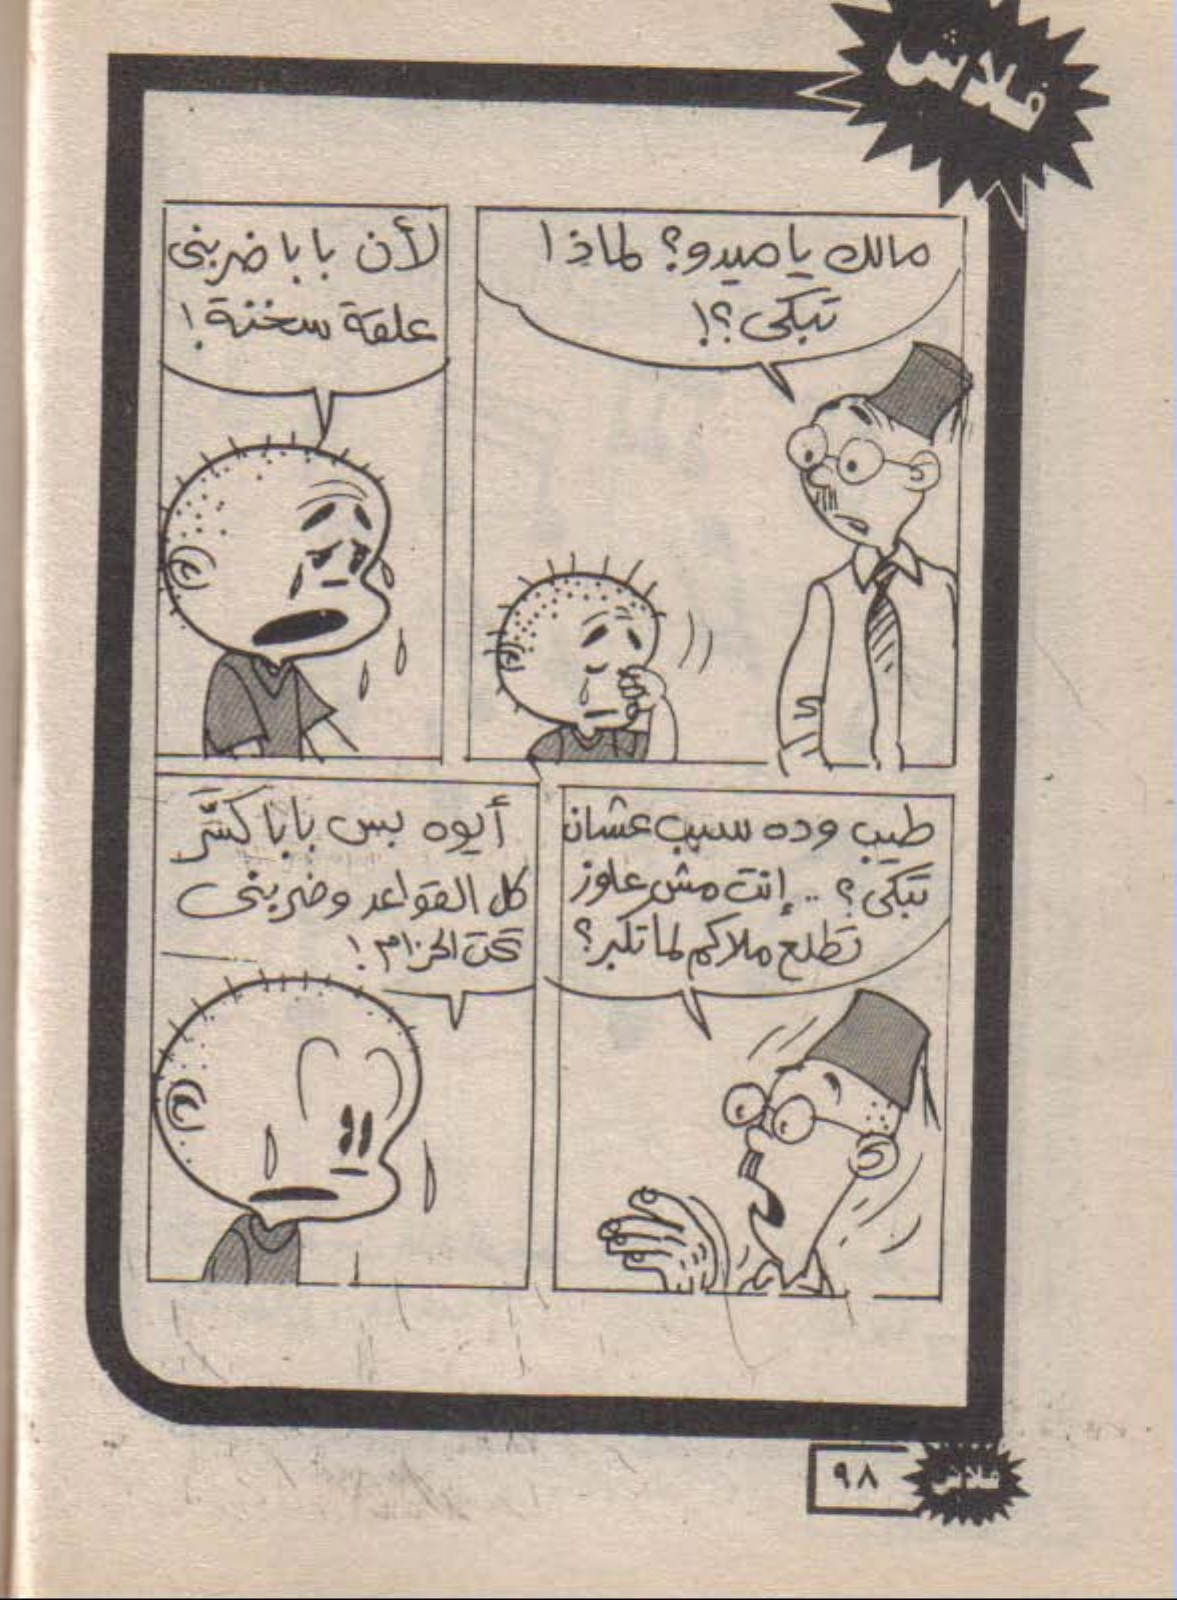 فلاش
مالك يا ميدو؟ لماذا
تبكى؟!
لأن بابا ضربنى
علقة سخنة!
طيب وده سبب عشان
تبكى؟ .. إنت مش عاوز
تطلع ملاكم لما تكبر؟
أيوه بس بابا كسَّر
كل القواعد وضربنى
تحت الحزام!
٩٨
فلاش